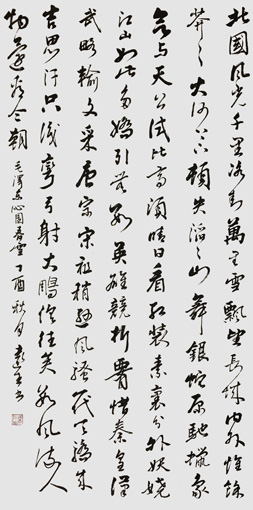 北國風光千里冰封萬里雪飄望長城内外惟餘
莽々大河上下頓失滔々山舞銀蛇原馳蠟象
欲与天公試比高須晴日看紅裝素裹分外妖嬈
江山如此多嬌引無數英雄競折腰惜秦皇漢
武略輸文采唐宗宋祖稍遜風騷一代天驕成
吉思汗只識彎弓射大鵰俱往矣數風流人
物還看今朝 毛澤東沁園春雪 丁酉秋月 書